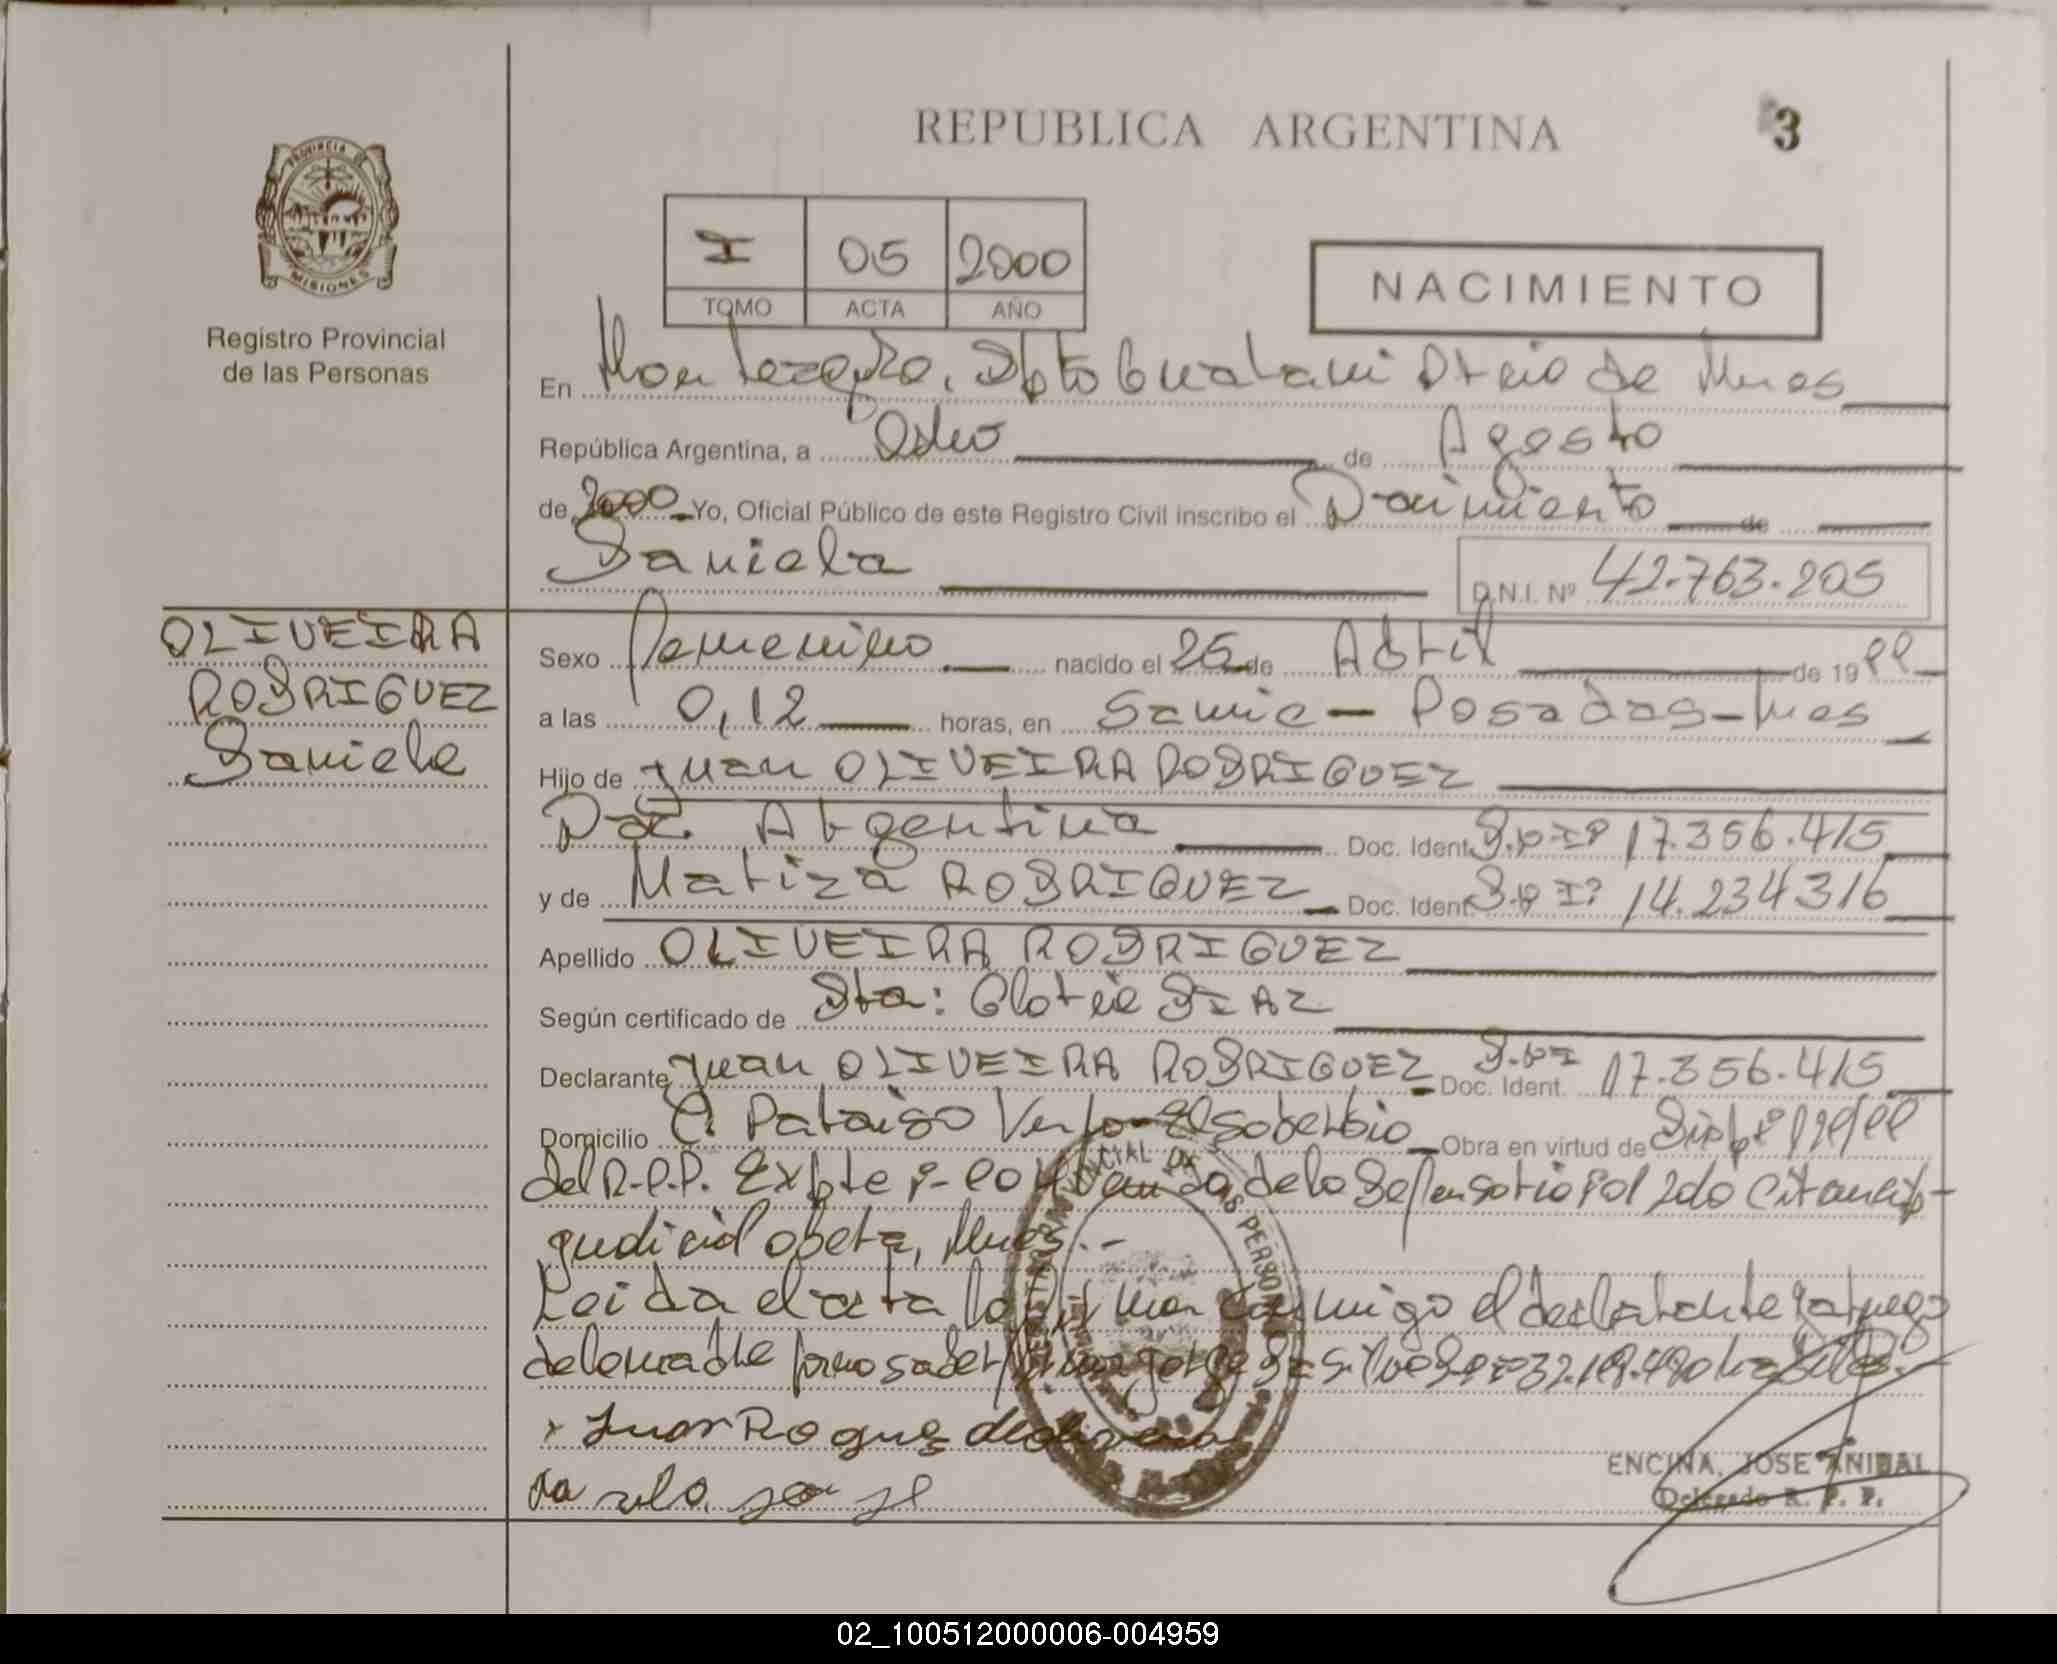 REPUBLICA ARGENTINA
3
PROVINCIA DE
MISIONES
Registro Provincial
de las Personas
I 05 2000
TOMO ACTA AÑO
NACIMIENTO
En Dpto Guarani de Mnes
República Argentina, a Ocho de Agosto
de 2000 Yo, Oficial Público de este Registro Civil inscribo el Nacimiento de
Daniela
D.N.I. Nº 42.763.205
OLIVEIRA
RODRIGUEZ
Daniela
Sexo Femenino nacido el 25 de Abril de 1999
a las 0,12 horas, en Samic - Posadas - Mnes
Hijo de Juan OLIVEIRA RODRIGUEZ
Nac. Argentina Doc. Ident. D.N.I. 17.356.415
y de Mariza RODRIGUEZ Doc. Ident. D.N.I. 14.234316
Apellido OLIVEIRA RODRIGUEZ
Según certificado de Dra: Glorie DIAZ
Declarante Juan OLIVEIRA RODRIGUEZ Doc. Ident. D.N.I 17.356.415
Domicilio C. Paraiso El soberbio Obra en virtud de
del R.P.P. Expte de la Defensoria 2do Circunscrip-
judicial obera, Mnes.-
Leida el acta la firman conmigo el declarante y a ruego
de la madre por no saber firmar
ENCINA, JOSE ANIBAL
Delegado R. P. P.
02_100512000006-004959